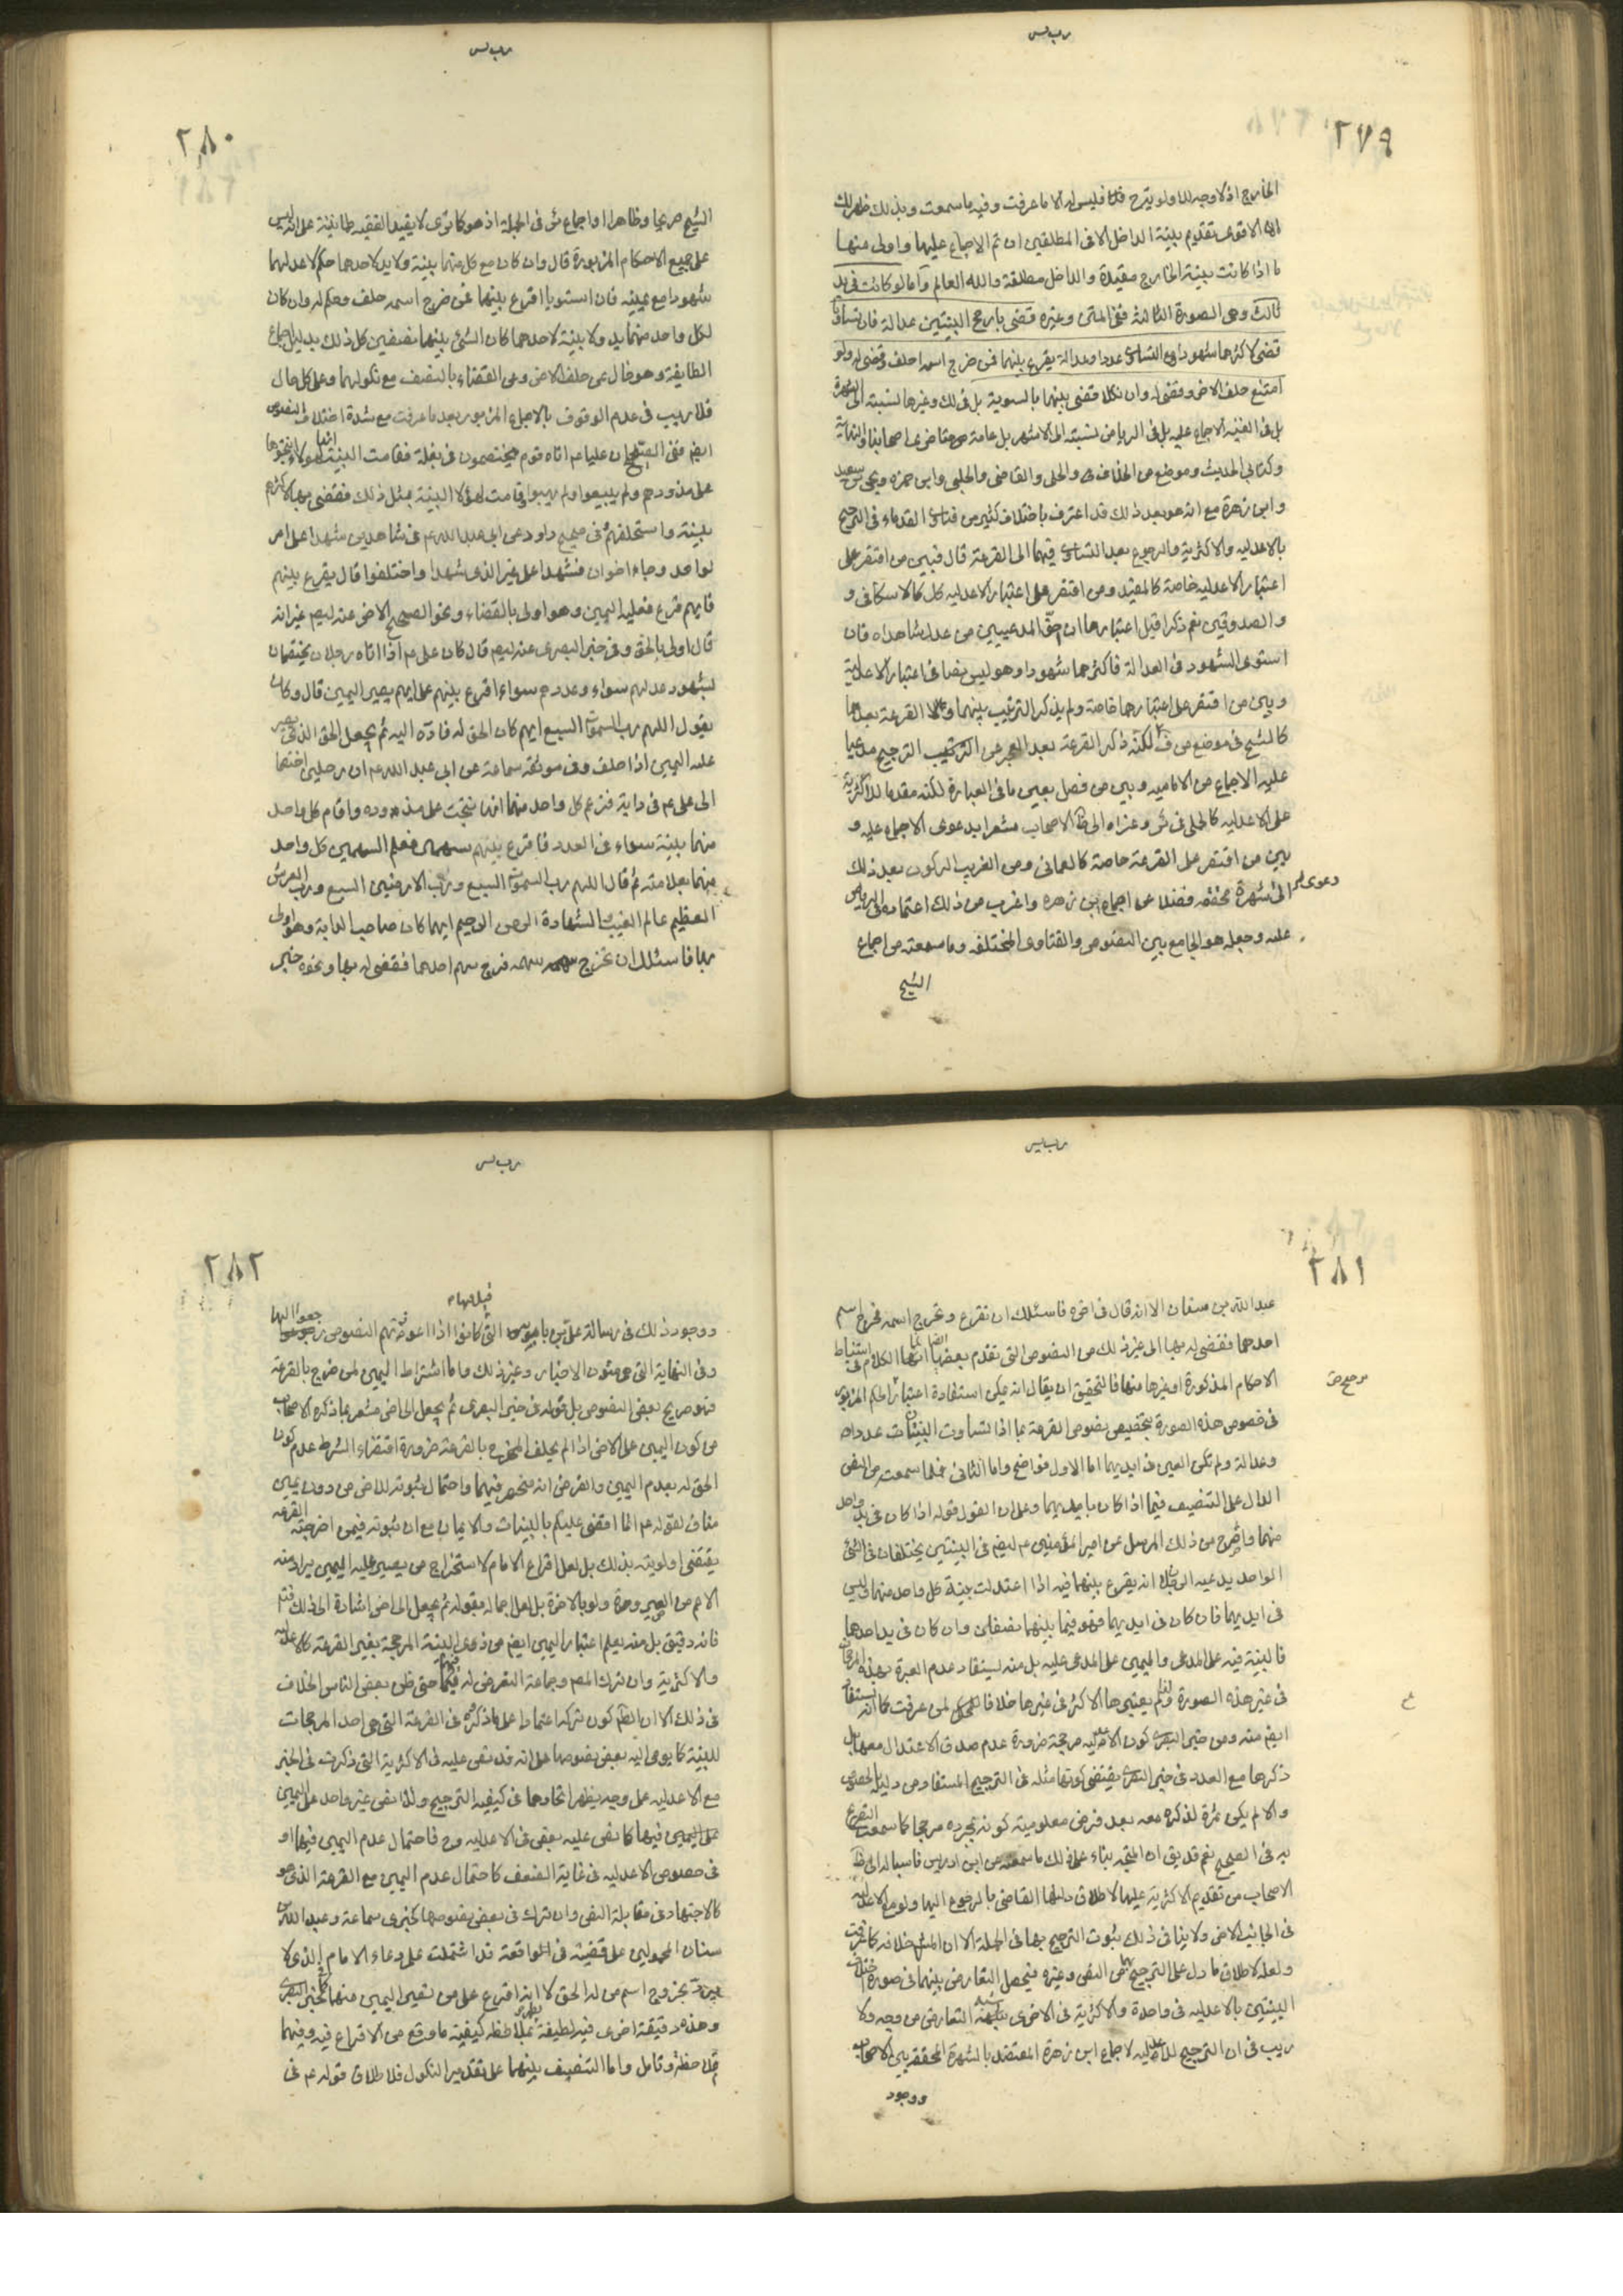 ٢٧٩
الخارج اذ لا وجه له ولو يترح فليس له الا ما عرفت وفيه ما سمعت وبذلك ظهر لك
ان الاقوى تقديم بينة الداخل الا فى المطلقين ان تم الاجماع عليهما واولى منها
ما اذا كانت بينة الخارج مقيدة والداخل مطلقة والله العالم وامالو كانت فى يد
ثالث وهى الصورة الثالثة ففى المتن وغيره قضى بارجح البينتين عدالة فان تساويا
قضى لاكثرهما شهودا ومع التساوى عددا وعدالة يقرع بينهما فمن خرج اسمه احلف وقضى له ولو
امتنع حلف الاخر وقضى له وان نكلا قضى بينهما بالسوية بل فى لك وغيرها نسبته الى الشهرة
بل فى الغنية الاجماع عليه بل فى الرياض نسبته الى الاشهر بل عامة متاخرى اصحابنا والنهاية
وكتابى الحديث وموضع من الخلاف والحلى والقاضى والحلبى وابن حمزه ويحيى بن سعيد
وابن زهرة مع انه هو بعد ذلك قد اعترف باختلاف كثير من فتاوى القدماء فى الترجيح
بالاعدلية والاكثرية والرجوع بعد التساوى فيهما الى القرعة قال فبين من اقتصر على
اعتبار الاعدليه خاصة كالمفيد ومن اقتصر على اعتبار الاعدليه كل كالاسكافى و
والصدوقين نعم ذكرا قبل اعتبارها ان احق المدعيين من عدل شاهداه فان
استوى الشهود فى العدالة فاكثرهما شهودا وهو ليس نصا فى اعتبار الاعدلية
وبين من اقتصر على اعتبارهما خاصة ولم يذكر الترتيب بينهما ولا القرعة بعدهما
كالشيخ فى موضع من ف لكنه ذكر القرعة بعد العجز عن الترتيب الترجيح مدعيا
عليه الاجماع من الاماميه وبين من فصل بعين ما فى العبارة لكنه مقدما للاكثرية
على الاعدليه كالحلى فى ئر وعزاه الى ظ الاصحاب مشعرا بدعوى الاجماع عليه و
بين من اقتصر على القرعة خاصة كالعمانى ومن الغريب الركون بعد ذلك
دعوى الى شهرة محققه فضلا عن اجماع ابن زهره واغرب من ذلك اعتماده فى الرياض
عليه وجعله هو الجامع بين النصوص والفتاوى المختلفه وما سمعته من اجماع
الشيخ
٢٨٠
الشيخ صريحا وظاهرا واجماع ئر فى الجملة اذ هو كما ترى لا يفيد الفقيه طمانينة على انه ليس
على جميع الاحكام المزبورة قال وان كان مع كل منهما بينة ولا يد لاحدهما حكم لاعدلهما
شهودا مع يمينه فان استويا اقرع بينهما فمن خرج اسمه حلف وحكم له وان كان
لكل واحد منهما يد ولا بينة لاحدهما كان الشئ بينهما نصفين كل ذلك بدليل اجماع
الطايفة وهو خال عن حلف الاخر وعن القضاء بالنصف مع نكولهما وعلى كل حال
فلا ريب فى عدم الوقوف بالاجماع المزبور بعد ما عرفت مع شدة اختلاف النصوص
ايضا ففى الصحيح ان عليا عم اتاه قوم يختصمون فى بغلة فقامت البينة لهؤلاء انهم انتجوها
على مذودهم ولم يبيعوا ولم يهبوا وقامت لهؤلاء البينة بمثل ذلك فقضى بها لاكثرهم
بينة واستحلفهم فى صحيح داود عن ابى عبدالله عم فى شاهدين شهدا على امر
لواحد وجاء اخوان فشهدا على غير الذى شهدا واختلفوا قال يقرع بينهم
فايهم قرع فعليه اليمين وهو اولى بالقضاء ونحو الصحيح الاخر عنه ايضا غير انه
قال اولى بالحق وفى خبر البصرى عنه ايضا قال كان على عم اذا اتاه رجلان يختصمان
بشهود عدلهم سواء وعددهم سواء اقرع بينهم على ايهم يصير اليمين قال وكان
يقول اللهم رب السموات السبع ايهم كان الحق له فاده اليه ثم يجعل الحق الذى يصير
عليه اليمين اذا حلف وفى موثقة سماعة عن ابى عبد الله عم ان رجلين اختصما
الى على عم فى دابة فزعم كل واحد منهما انها نتجت على مذوده واقام كل واحد
منهما بينة سواء فى العدد فاقرع بينهم سهمين فعلم السهمين كل واحد
منهما بعلامته ثم قال اللهم رب السموات السبع ورب الارضين السبع ورب العرش
العظيم عالم الغيب والشهادة الرحمن الرحيم ايهما كان صاحب الدابة وهو اولى
بها فاسئلك ان تخرج سهمه فخرج سهم احدهما فقضى له بها ونحوه خبر
٢٨١
عبد الله بن سنان الا انه قال فى اخره فاسئلك ان تقرع وتخرج اسمه فخرج اسم
احدهما فقضى له بها الى غير ذلك من النصوص التى تقدم بعضها ايضا انما الكلام فى استنباط
الاحكام المذكورة او غيرها منها فالتحقيق ان يقال انه يمكن استفادة اعتبار الحكم المزبور
فى خصوص هذه الصورة بتخصيص نصوص القرعة بما اذا تساوت البينتان عددا
وعدالة ولم تكن العين فى ايديهما اما الاول فواضح واما الثانى فلما سمعت من النص
الدال على التنصيف فيما اذا كان بايديهما وعلى ان القول قوله اذا كان فى يد واحد
منهما واصرح من ذلك المرسل عن امير المؤمنين عم ايضا فى البينتين يختلفان فى الشئ
الواحد يدعيه الرجلان انه يقرع بينهما فيه اذا اعتدلت بينة كل واحد منهما وليس
فى ايديهما فان كان فى ايديهما فهو فيما بينهما نصفان وان كان فى يد احدهما
فالبينة فيه على المدعى واليمين على المدعى عليه بل منه يستفاد عدم العبرة بهذه المرجحات
فى غير هذه الصورة ولذا لم يعتبرها الاكثر فى غيرها خلافا لمن عرفت كما انه يستفاد
ايضا منه ومن خبر البصرى كون الاعدليه مرجحة ضرورة عدم صدق الاعتدال معها بل
ذكرها مع العدد فى خبر البصرى يقتضى كونها مثله فى الترجيح المستفاد من دليل الخصوص
والا لم يكن ثمرة لذكره معه بعد فرض معلومية كونه بمجرده مرجحا كما سمعت التصريح
به فى الصحيح نعم قد يق ان المتجه بناء على ذلك ما سمعته من ابن ادريس ناسبا له الى ظ
الاصحاب من تقديم الاكثرية عليها لاطلاق دليلها القاضى بالرجوع اليها ولو مع الاعدليه
فى الجانب الاخر ولا ينافى ذلك ثبوت الترجيح بها فى الجملة الا ان المشهور خلافه كما عرفت
ولعله لاطلاق ما دل على الترجيح بها من النص وغيره فيحصل التعارض بينهما فى صورة اختلاف
البينتين بالاعدليه فى واحدة والاكثرية فى الاخرى شبه التعارض من وجه ولا
ريب فى ان الترجيح للاعدليه لاجماع ابن زهرة المعتضد بالشهرة المحققة بين الاصحاب
ووجود
٢٨٢
ووجود ذلك فى رسالة على بن بابويه التى كانوا اذا اعوزتهم النصوص رجعوا اليها
وفى النهاية التى هى متون الاخبار وغير ذلك واما اشتراط اليمين لمن خرج بالقرعة
فهو صريح بعض النصوص بل قوله فى خبر البصرى ثم يجعل الخ مشعر بما ذكره الاصحاب
من كون اليمين على الاخر اذا لم يحلف المخرج بالقرعة ضرورة اقتضاء الشرط عدم كون
الحق له بعدم اليمين والفرض انه منحصر فيهما واحتمال ثبوته للاخر من دون يمين
مناف لقوله عم انما اقضى عليكم بالبينات والايمان مع ان ثبوته فيمن اخرجته القرعه
يقتضى اولويته بذلك بل لعل اقراع الامام لاستخراج من يصير عليه اليمين يراد منه
الاعم من اليمين وحده ولو بالاخرة بل لعل اجماله بقوله ثم يجعل الى اخر اشارة الى ذلك فتم
فانه دقيق بل منه يعلم اعتبار اليمين ايضا من ذوى البينة المرجحة بغير القرعة كالاعدليه
والاكثرية وان ترك المصم وجماعة التعرض له فيهما حتى ظن بعض الناس الخلاف
فى ذلك الا ان الظم كون تركه اعتمادا على ما ذكروه فى القرعة التى هى احد المرجحات
للبينة كما يومى اليه بعض نصوصها على انه قد نص عليه فى الاكثرية التى ذكرت فى الخبر
مع الاعدليه على وجه يظهر اتحادهما فى كيفيه الترجيح ولذا نص غير واحد على اليمين
على اليمين فيها كما نص عليه بعض فى الاعدليه وح فاحتمال عدم اليمين فيها او
فى خصوص الاعدليه فى غاية الضعف كاحتمال عدم اليمين مع القرعة الذى هو
كالاجتهاد فى مقابلة النص وان ترك فى بعض نصوصها كخبرى سماعة وعبد الله بن
سنان المحمولين على قضية فى الواقعة قد اشتملت على دعاء الامام الذى لا
يرد بخروج اسم من له الحق لا انه اقرع على من تصير اليمين منهما كخبر البصرى
وهذه دقيقة اخرى فيه لطيفة بملاحظه كيفيته ما وقع من الاقراع فيه وفيهما
فلاحظ وتامل واما التنصيف بينهما على تقدير النكول فلاطلاق قوله عم فى